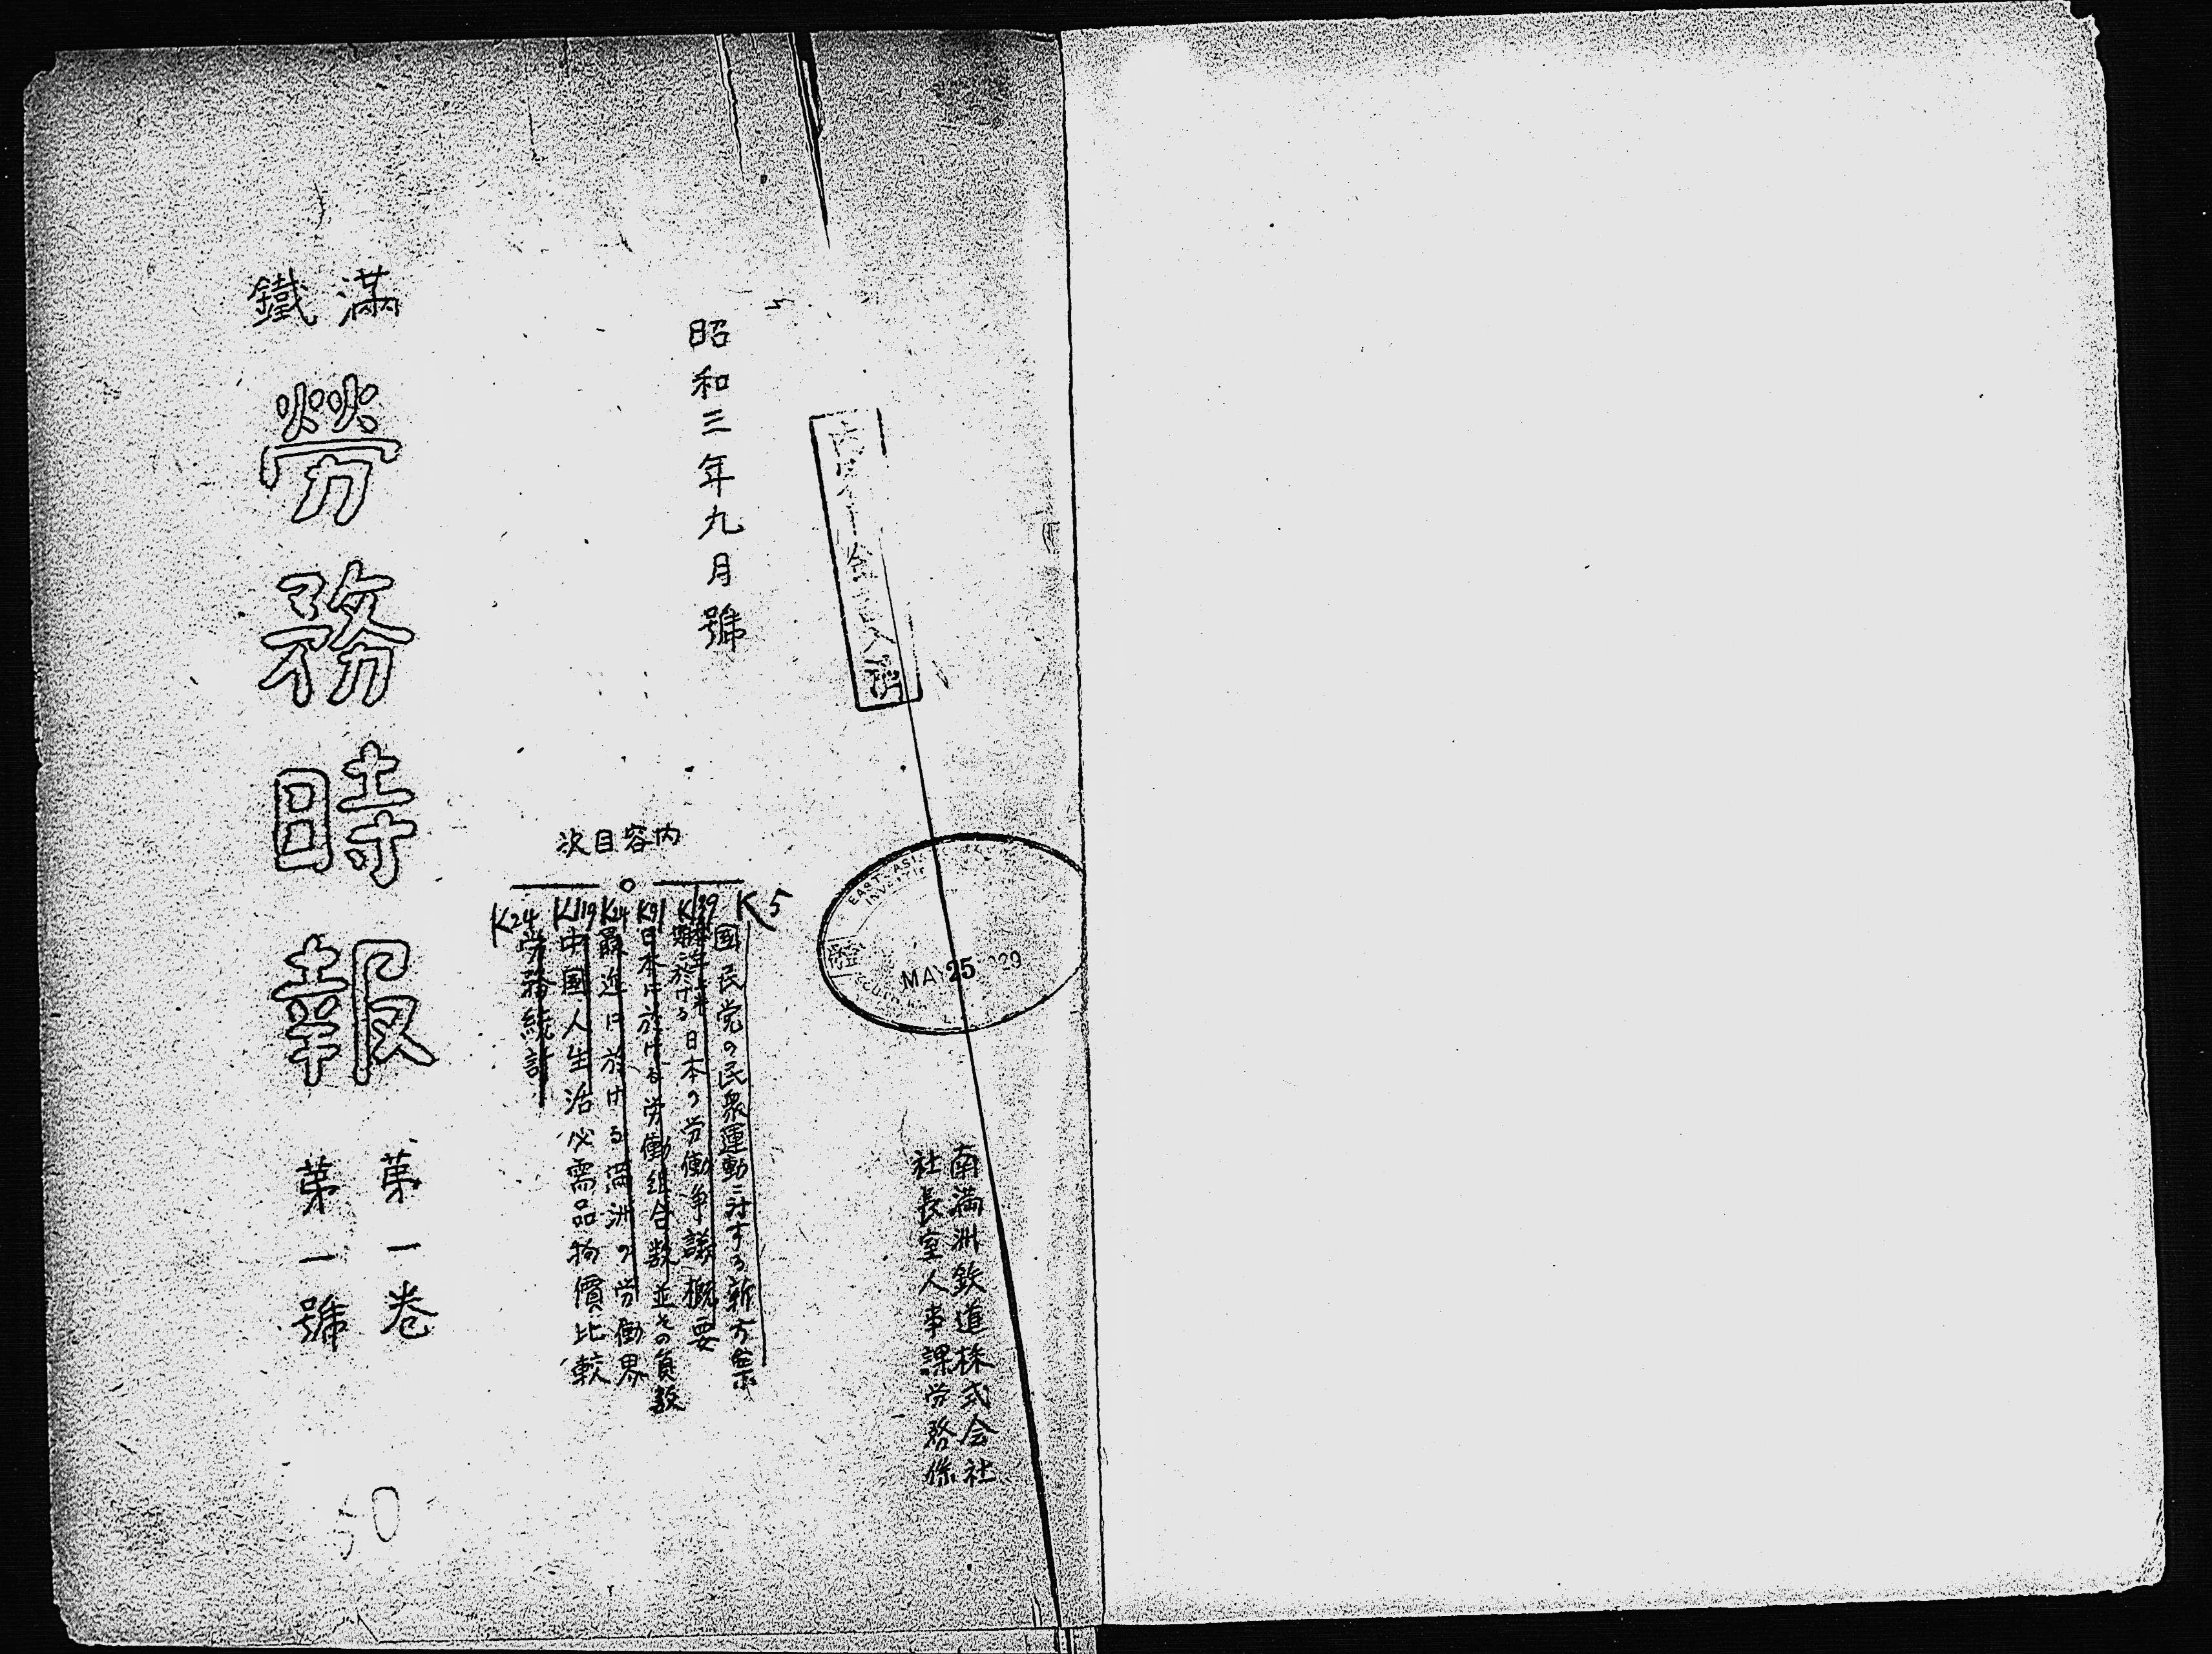 南満洲鉄道株式会社
社長室人事課労務係
EAST ASIA
MAY 25 1929
昭和三年九月號
内容目次
K5
國民党の民衆運動ニ対する新方策
K139
於ける日本の労働争議概要
K91
日本に於ける労働組合数並その員数
K24
最近に於ける満洲の労働界
K119
中國人生活必需品物價比較
K24
労務統計
満鐵
勞務時報
第一巻
第一號
50